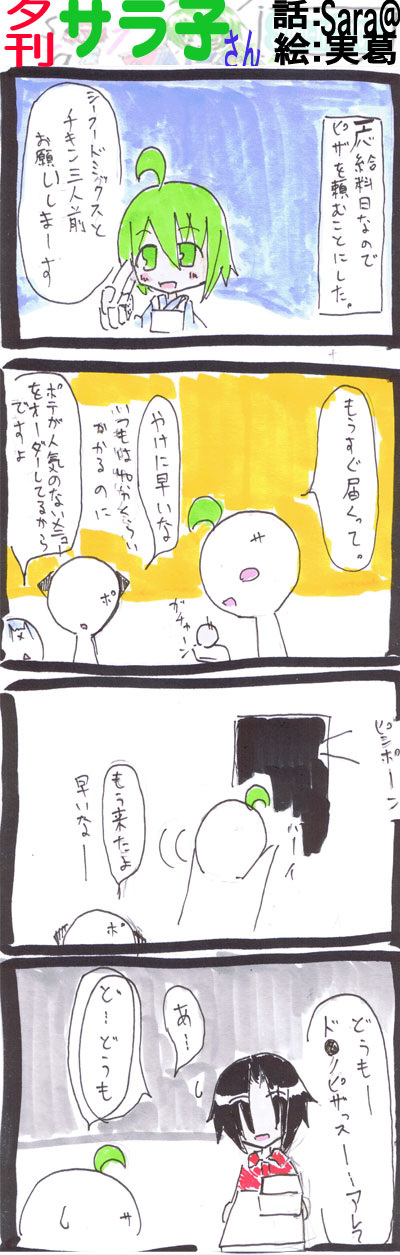 夕刊
サラ子さん
話:Sara@
絵:実葛
応給料日なので
ピザを頼むことにした。
シーフードミックスと
チキン三人前
お願いしまーす
もうすぐ届くって。
やけに早いな
いつもは
くらい
かかるのに
ポテが人気のない
をオーダーしてるから
ですよ
サ
ポ
メ
ガチャーン
ピンポーン
ハーイ
もう来たよ
早いなー
ポ
どうもー
ド●ノピザっスーーアレ?
あー、
どーどうも
サ